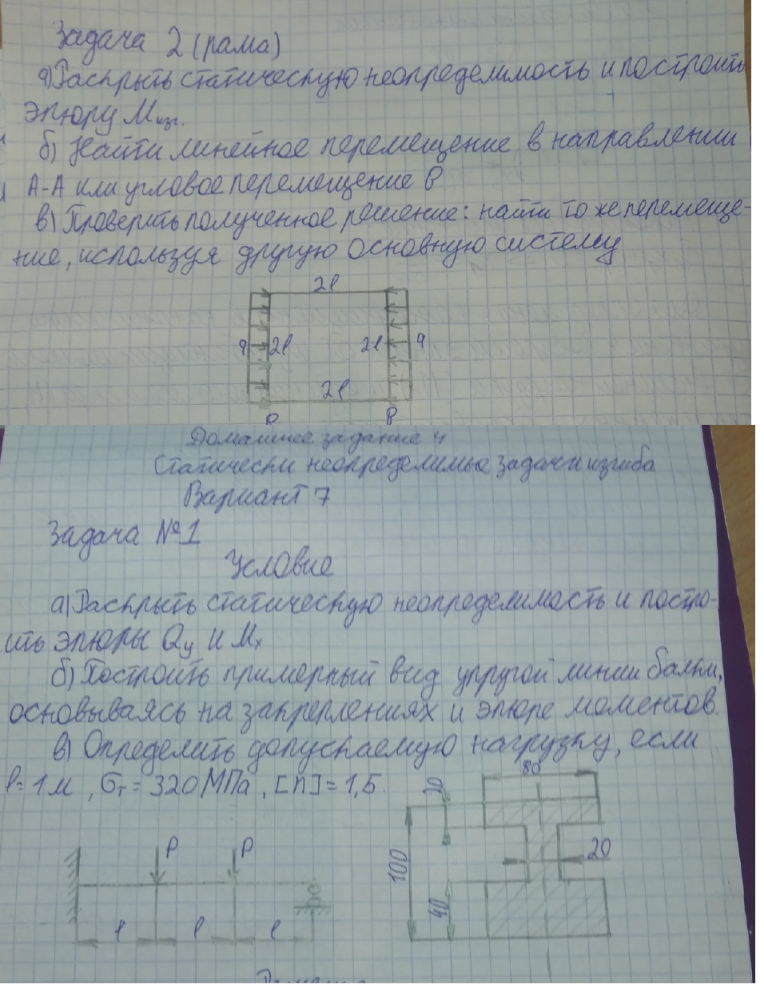 Задача 2 (рама)
а) Раскрыть статическую неопределимость и построить
эпюру Mизг.
б) Найти линейное перемещение в направлении
А-А или угловое перемещение
в) Проверить полученное решение: найти то же перемеще-
ние, используя другую основную систему
2l
q 2l 2l q
2l
Домашнее задание 4
Статически неопределимые задачи изгиба
Вариант 7
Задача №1
Условие
а) Раскрыть статическую неопределимость и постро-
ить эпюры Qy и Mx
б) Построить примерный вид упругой линии балки,
основываясь на закреплениях и эпюре моментов.
в) Определить допускаемую нагрузку, если
l=1м, σт=320МПа, [n]=1,5.
80
20
20
100
40
P P
l l l